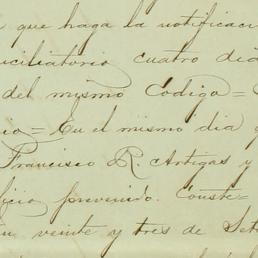 que haga la notificaci
ciliatorio cuatro dia
del mismo Codigo =
io = En el mismo dia
Francisco R. Artigas y
ficio prevenido. Conste =
veinte y tres de Set